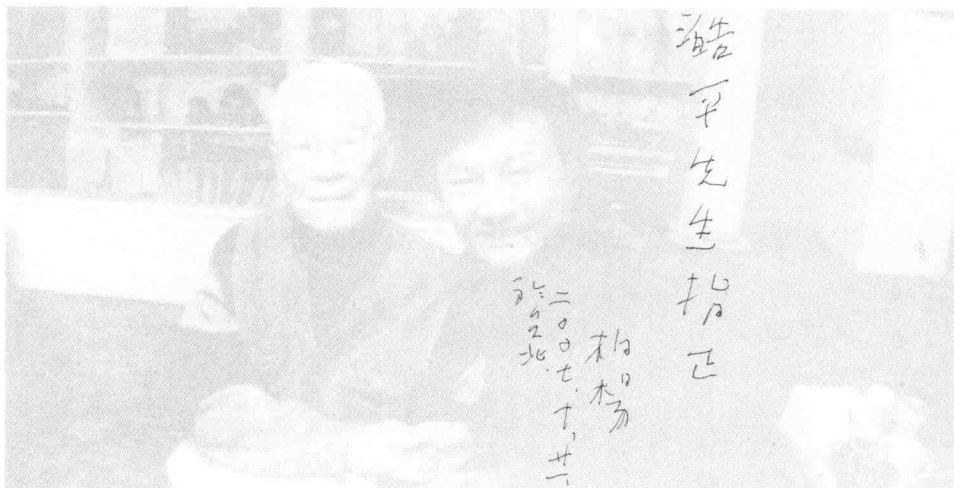 澔平先生指正
柏楊
二〇〇七、十、廿一
於台北